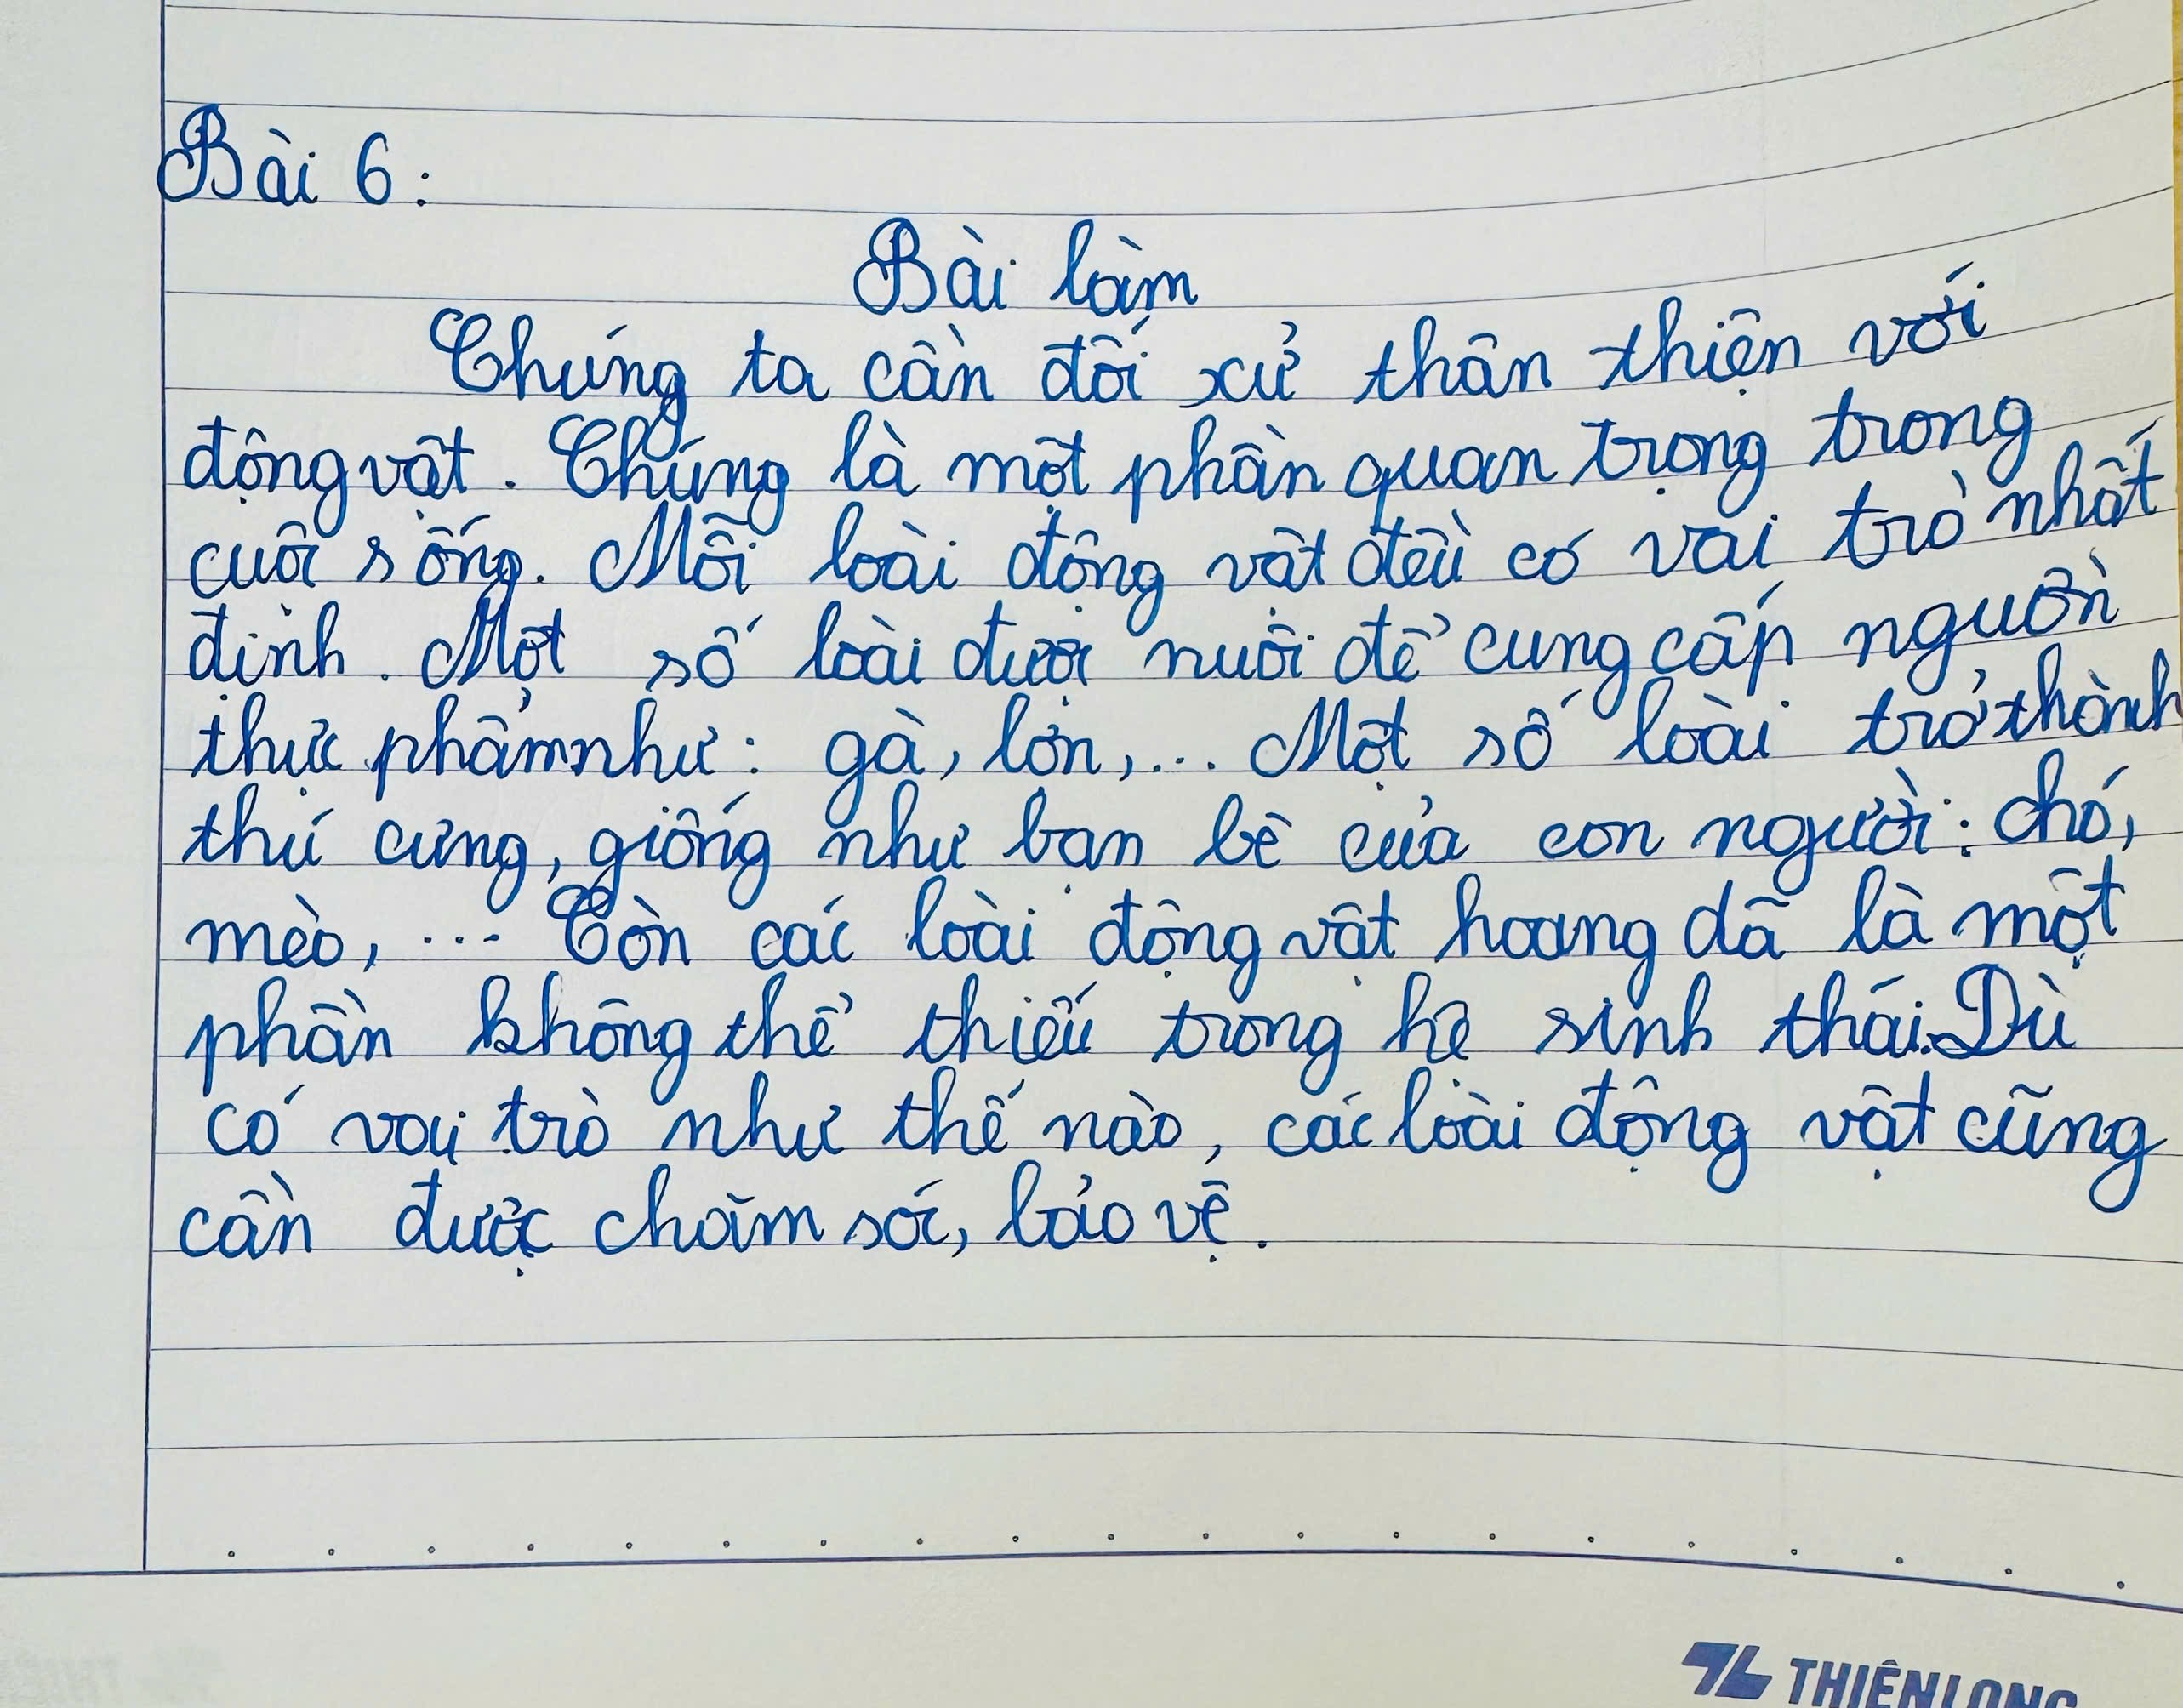 Bài 6:
Bài làm
Chúng ta cần đối xử thân thiện với
động vật. Chúng là một phần quan trọng trong
cuộc sống. Mỗi loài động vật đều có vai trò nhất
định. Một số loài được nuôi để cung cấp nguồn
thực phẩm như: gà, lợn,... Một số loài trở thành
thú cưng, giống như bạn bè của con người: chó,
mèo, ... Còn các loài động vật hoang dã là một
phần không thể thiếu trong hệ sinh thái. Dù
có vai trò như thế nào, các loài động vật cũng
cần được chăm sóc, bảo vệ.
THIÊN LONG